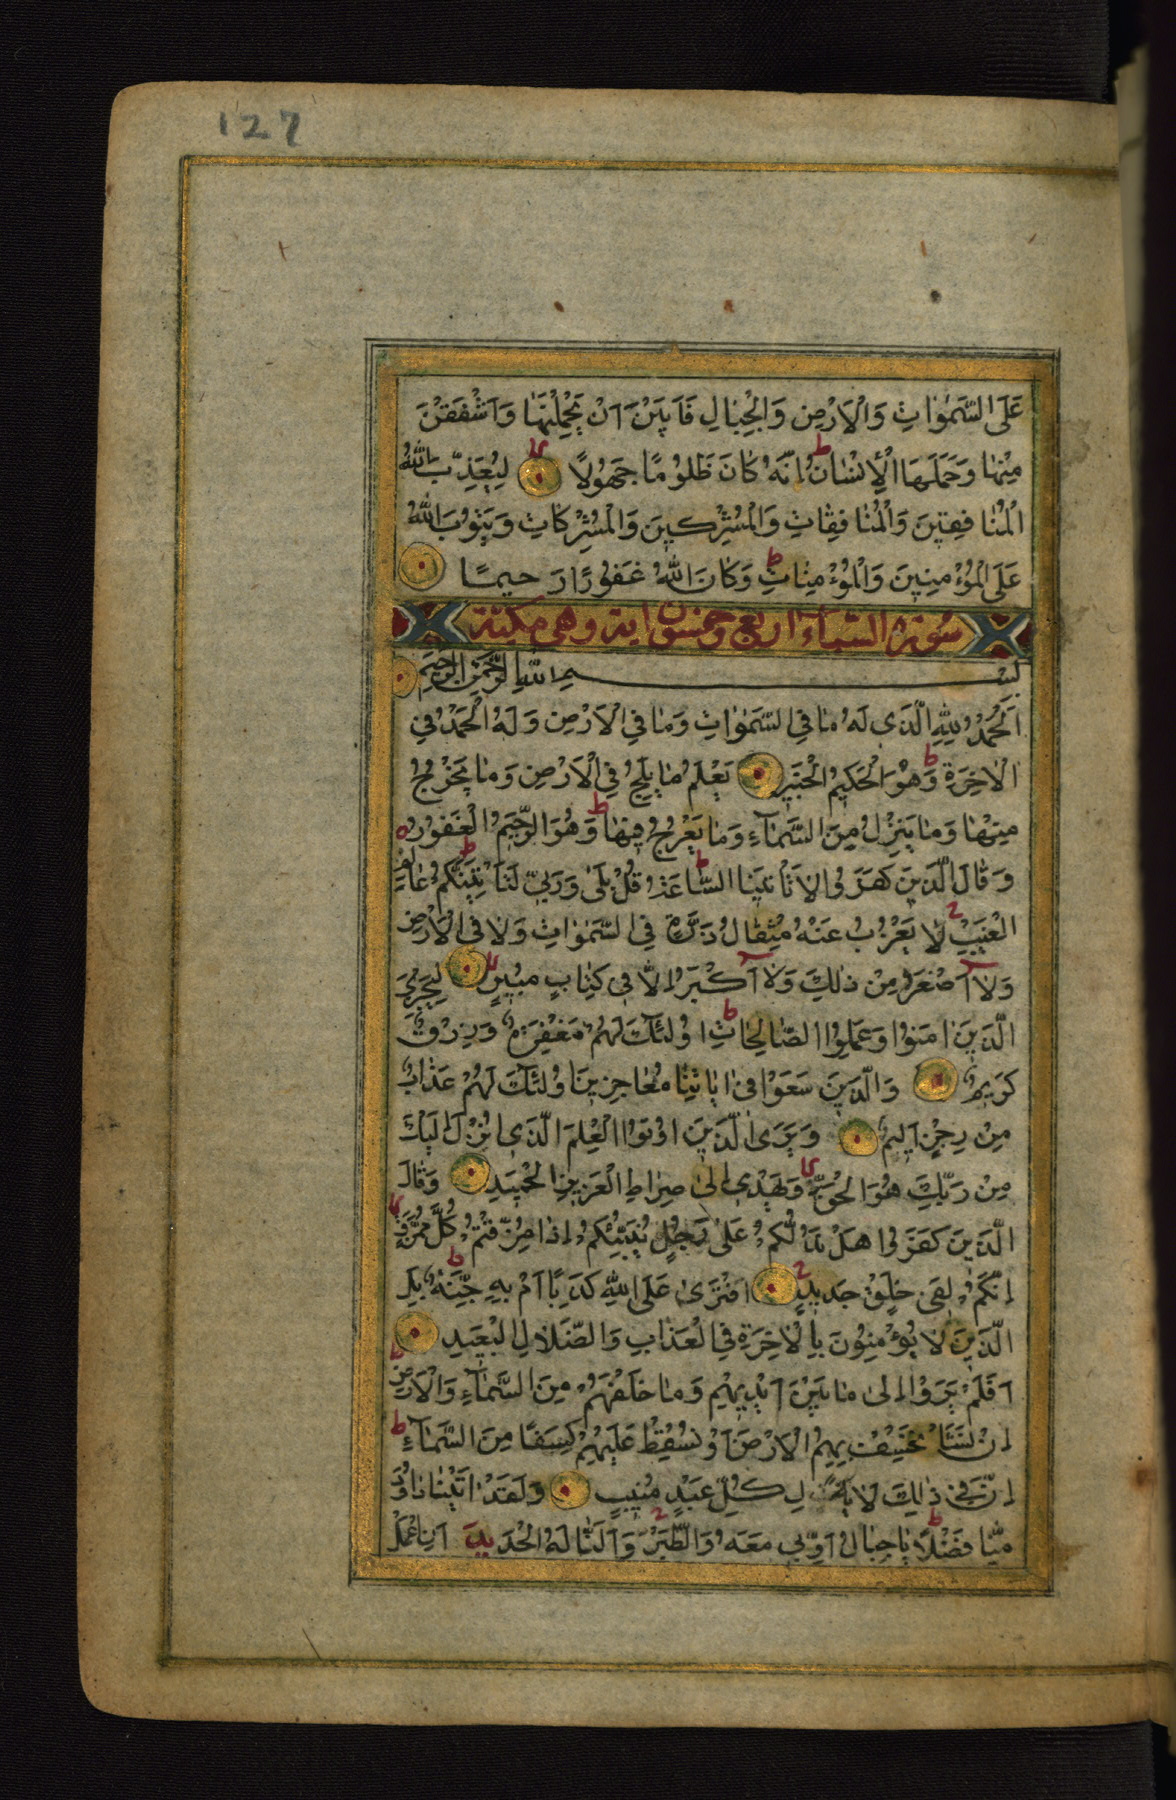 127
عَلَى السَّمٰوٰاتِ وَالْاَرْضِ وَالْجِبٰالِ فَاَبَيْنَ اَنْ يَحْمِلْنَهٰا وَاَشْفَقْنَ
مِنْهٰا وَحَمَلَهَا الْاِنْسٰانُ ط اِنَّهُ كٰانَ ظَلُومًا جَهُولًا لِيُعَذِّبَ اللّٰهُ
الْمُنٰافِقينَ وَالْمُنٰافِقٰاتِ وَالْمُشْرِكينَ وَالْمُشْرِكٰاتِ وَيَتُوبَ اللّٰهُ
عَلَى الْمُؤْمِنينَ وَالْمُؤْمِنٰاتِ ط وَكٰانَ اللّٰهُ غَفُورًا رَحيمًا
سورة السباء اربع وخمسون اية وهى مكية
بسم اللّٰهِ الرَّحْمٰنِ الرَّحيمِ
اَلْحَمْدُ لِلّٰهِ الَّذى لَهُ مٰا فِى السَّمٰوٰاتِ وَمٰا فِى الْاَرْضِ وَلَهُ الْحَمْدُ فِى
الْاٰخِرَةِ ط وَهُوَ الْحَكيمُ الْخَبيرُ يَعْلَمُ مٰا يَلِجُ فِى الْاَرْضِ وَمٰا يَخْرُجُ
مِنْهٰا وَمٰا يَنْزِلُ مِنَ السَّمٰاۤءِ وَمٰا يَعْرُجُ فيهٰا ط وَهُوَ الرَّحيمُ الْغَفُورُ ه
وَقٰالَ الَّذينَ كَفَرُوا لاٰ تَأْتينَا السّٰاعَةُ ط قُلْ بَلٰى وَرَبّى لَتَأْتِيَنَّكُمْ ط عٰالِمِ
الْغَيْبِ ج لاٰ يَعْزُبُ عَنْهُ مِثْقٰالُ ذَرَّةٍ فِى السَّمٰوٰاتِ وَلاٰ فِى الْاَرْضِ
وَلاٰ اَصْغَرُ مِنْ ذٰلِكَ وَلاٰ اَكْبَرُ اِلّٰا فى كِتٰابٍ مُبينٍ لِيَجْزِىَ
الَّذينَ اٰمَنُوا وَعَمِلُوا الصّٰالِحٰاتِ ط اُولٰئِكَ لَهُمْ مَغْفِرَةٌ وَرِزْقٌ
كَريمٌ وَالَّذينَ سَعَوْا فى اٰيٰاتِنٰا مُعٰاجِزينَ اُولٰئِكَ لَهُمْ عَذٰابٌ
مِنْ رِجْزٍ اَليمٌ وَيَرَى الَّذينَ اُوتُوا الْعِلْمَ الَّذى اُنْزِلَ اِلَيْكَ
مِنْ رَبِّكَ هُوَ الْحَقَّ وَيَهْدى اِلٰى صِرٰاطِ الْعَزيزِ الْحَميدِ وَقٰالَ
الَّذينَ كَفَرُوا هَلْ نَدُلُّكُمْ عَلٰى رَجُلٍ يُنَبِّئُكُمْ اِذٰا مُزِّقْتُمْ كُلَّ مُمَزَّقٍ
اِنَّكُمْ لَفى خَلْقٍ جَديدٍ ج اَفْتَرٰى عَلَى اللّٰهِ كَذِبًا اَمْ بِهِ جِنَّةٌ ط بَلِ
الَّذينَ لاٰ يُؤْمِنُونَ بِالْاٰخِرَةِ فِى الْعَذٰابِ وَالضَّلاٰلِ الْبَعيدِ
اَفَلَمْ يَرَوْا اِلٰى مٰا بَيْنَ اَيْديهِمْ وَمٰا خَلْفَهُمْ مِنَ السَّمٰاۤءِ وَالْاَرْضِ ط
اِنْ نَشَأْ نَخْسِفْ بِهِمُ الْاَرْضَ اَوْ نُسْقِطْ عَلَيْهِمْ كِسَفًا مِنَ السَّمٰاۤءِ ط
اِنَّ فى ذٰلِكَ لَاٰيَةً لِكُلِّ عَبْدٍ مُنيبٍ وَلَقَدْ اٰتَيْنٰا دٰاوُدَ
مِنّٰا فَضْلًا ط يٰا جِبٰالُ اَوِّبى مَعَهُ وَالطَّيْرَ ج وَاَلَنّٰا لَهُ الْحَديدَ اَنِ اعْمَلْ